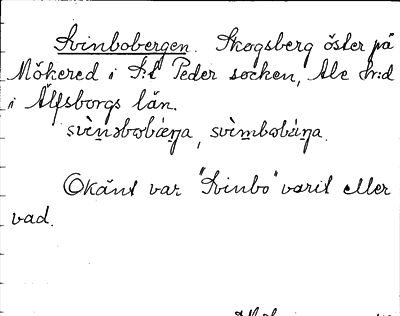 Svinbobergen. Skogsberg öster på
Mökered i S:t Peder socken, Ale h:d
i Älfsborgs län.
svìn̠əbωbǽŋa, svìm̠bωbǽŋa.
Okänt var "Svinbo" varit eller
vad.